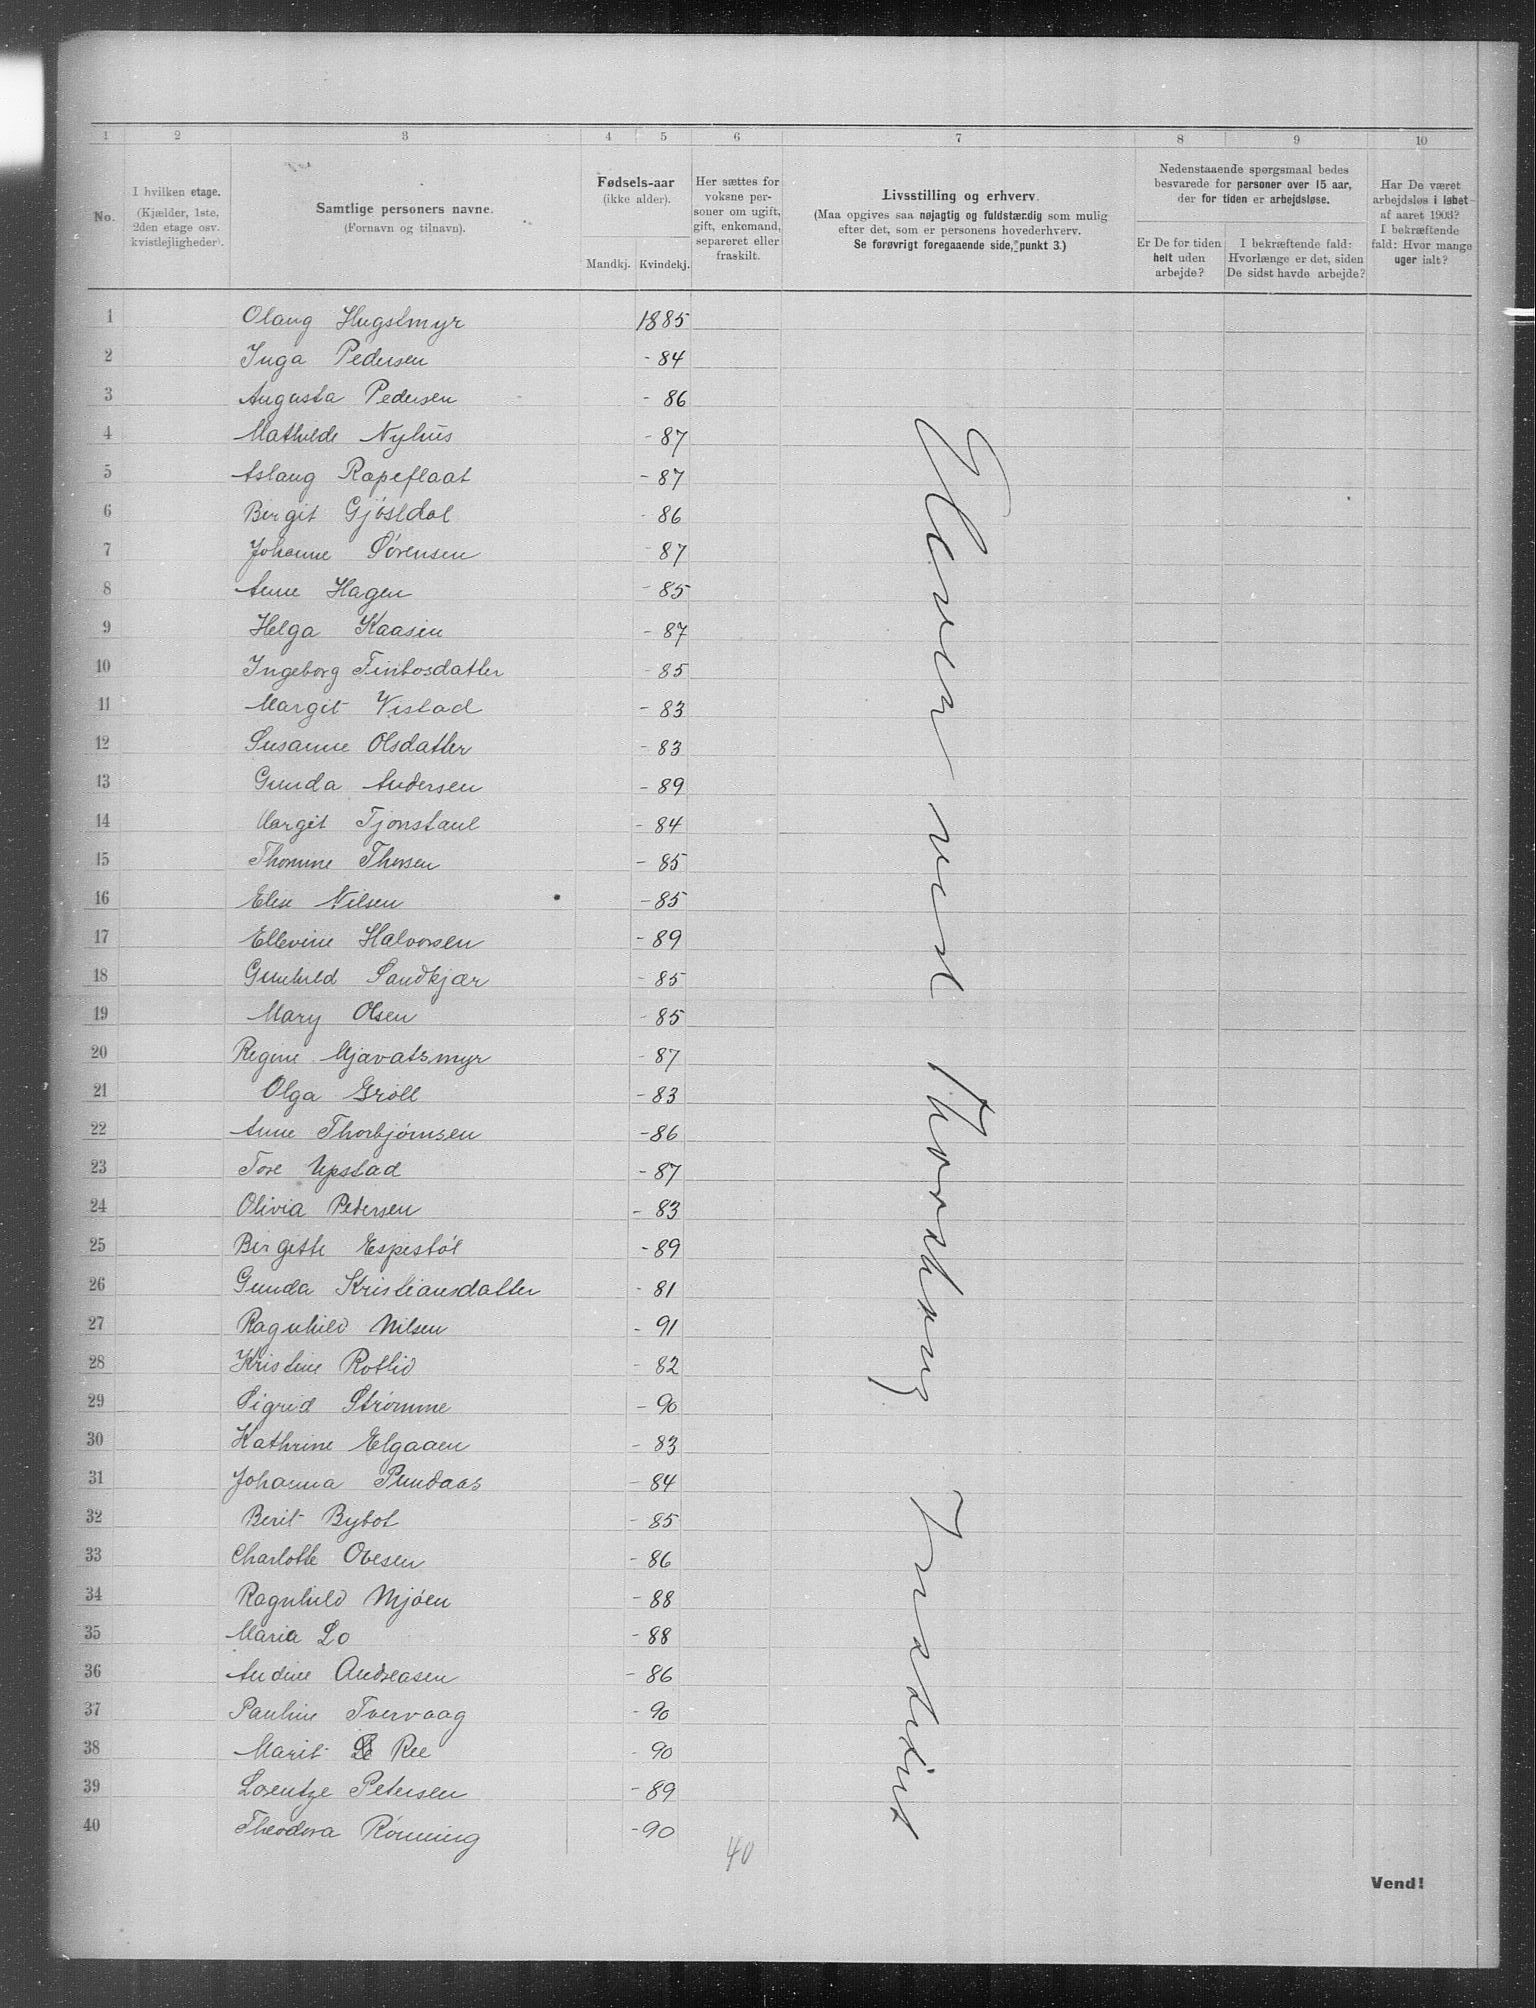 1 2 3 4 5 6 7 8 9 10
No.
I hvilken etage.
(Kjælder, 1ste,
2den etage osv.
kvistleiligheder).
Samtlige personers navne.
(Fornavn og tilnavn).
Fødsels-aar
(ikke alder).
Mandkj. Kvindekj.
Her sættes for
voksne per-
soner om ugift,
gift, enkemand,
separeret eller
fraskilt.
Livsstilling og erhverv.
(Maa opgives saa nøjagtig og fuldstændig som mulig
efter det, som er personens hovederhverv.
Se forøvrigt foregaaende side, punkt 3.)
Nedenstaaende spørgsmaal bedes
besvarede for personer over 15 aar,
der for tiden er arbejdsløse.
Er De for tiden
helt uden
arbejde?
I bekræftende fald:
Hvorlænge er det, siden
De sidst havde arbejde?
Har De været
arbejdsløs i løbet
af aaret 1903?
I bekræftende
fald: Hvor mange
uger ialt?
1 Olaug Hugstmyr 1885
2 Inga Pedersen - 84
3 Augusta Pedersen - 86
4 Mathilde Nyhus - 87
5 Aslaug Rapeflaat - 87
6 Birgit Gjøsldal - 86
7 Johanne Sørensen - 87
8 Anne Hagen - 85
9 Helga Kaasen - 87
10 Ingeborg Tintosdatter - 85
11 Margit Vistad - 83
12 Susanne Olsdatter - 83
13 Gunda Andersen - 89
14 Margit Tjønstaul - 84
15 Thomine Thorsen - 85
16 Elise Nilsen - 85
17 Ellevine Halvorsen - 89
18 Gunhild Sandkjær - 85
19 Mary Olsen - 85
20 Regine Mjavatsmyr - 87
21 Olga Grøll - 83
22 Anne Thorbjørnsen - 86
23 Tore Upstad - 87
24 Olivia Petersen - 83
25 Birgette Espestøl - 89
26 Gunda Kristiansdatter - 81
27 Ragnhild Nilsen - 91
28 Kristine Rotlid - 82
29 Sigrid Strømme - 90
30 Kathrine Elgaaen - 83
31 Johanna Pundaas - 84
32 Berit Bybot - 85
33 Charlotte Ovesen - 86
34 Ragnhild Mjøen - 88
35 Maria Lo - 88
36 Andine Andreasen - 86
37 Pauline Tvervaag - 90
38 Marit Ree - 90
39 Lorentze Petersen - 89
40 Theodora Rønning - 90
40
Elever ved Thorshaug Institut
Vend!